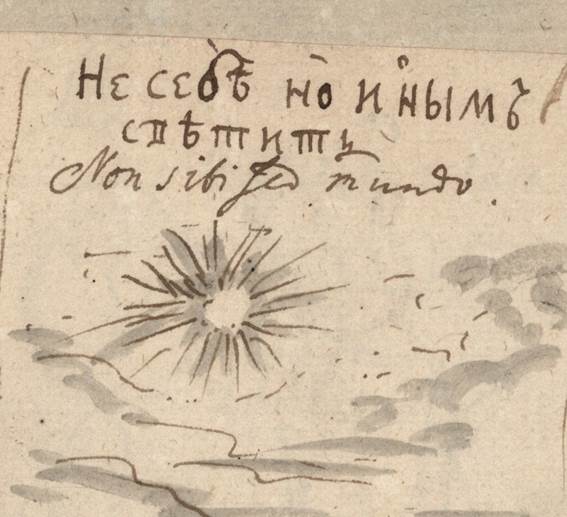 Не себѣ но инымъ
свѣтитъ
Non sibi sed mundo.